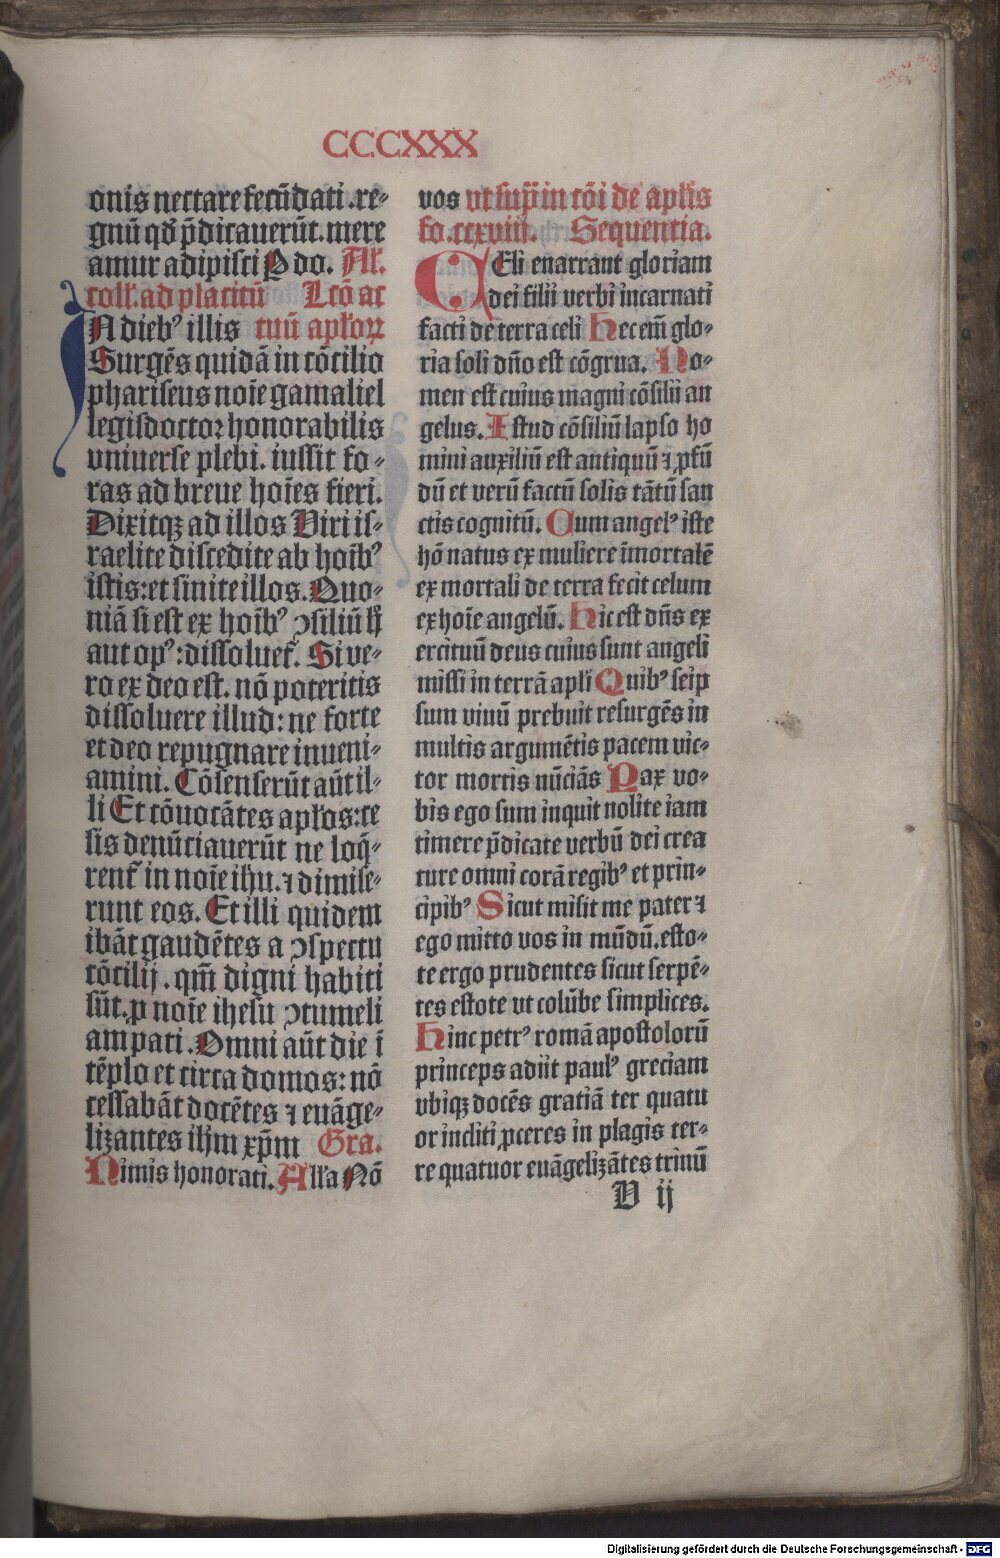 CCCXXX
onis nectare fecūdati .re-
gnū qd̕ p̄dicauerūt. mere
amur adipisci P do. Al̕.
coll̕. ad placitū Lcō ac
IN dieb⁹ illis tuū apl̕oꝝ
Surgēs quidā in cōcilio
phariseus noīe gamaliel
legisdoctor honorabilis
vniuerse plebi. iussit fo-
ras ad breue hoīes fieri.
Dixitqꝫ ad illos Viri is-
raelite discedite ab hoīb⁹
istis: et sinite illos. Quo-
niā si est ex hoīb⁹ ↄsiliū h̕
aut op⁹: dissoluet̕. Si ve-
ro ex deo est. nō poteritis
dissoluere illud: ne forte
et deo repugnare inueni-
amini. Cōsenserūt aūt il-
li Et cōuocātes apl̕os: ce
sis denūciauerūt ne loq̄-
rent̕ in noīe ihu. ⁊ dimise-
runt eos. Et illi quidem
ibāt gaudētes a ↄspectu
cōcilij . qm̄ digni habiti
sūt. ꝓ noīe ihesu ↄtumeli
am pati . Omni aūt die ī
tēplo et circa domos: nō
cessabāt docētes ⁊ euāge-
lizantes ih̄m xp̄m Gra.
Nimis honorati. All̕a Nō
vos vt sup̄ in cōi de apl̕is
fo. ccxviii. Sequentia.
CEli enarrant gloriam
dei filii verbi incarnati
facti de terra celi Hec em̄ glo-
ria soli dn̄o est cōgrua. No-
men est cuius magni cōsilii an
gelus. Istud cōsiliū lapso ho
mini auxiliū est antiquū ⁊ ꝓfū
dū et verū factū solis tātū san
ctis cognitū. Cum angel⁹ iste
hō natus ex muliere īmortalē
ex mortali de terra fecit celum
ex hoīe angelū. Hic est dn̄s ex
ercituū deus cuius sunt angeli
missi in terrā apl̕i Quib⁹ seip
sum viuū prebuit resurgēs in
multis argumētis pacem vic-
tor mortis nūciās Pax vo-
bis ego sum inquit nolite iam
timere p̄dicate verbū dei crea
ture omni corā regib⁹ et prin-
cipib⁹ Sicut misit me pater ⁊
ego mitto vos in mūdū. esto-
te ergo prudentes sicut serpē-
tes estote vt colūbe simplices.
Hinc petr⁹ romā apostolorū
princeps adiit paul⁹ greciam
vbiqꝫ docēs gratiā ter quatu
or incliti ꝓceres in plagis ter-
re quatuor euāgelizātes trinū
V ij
Digitalisierung gefördert durch die Deutsche Forschungsgemeinschaft - DFG